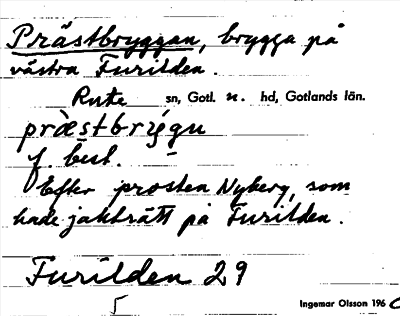 Prästbryggan, brygga på
västra Furilden.
Rute sn, Gotl. n. hd, Gotlands län.
præstbrýgu
f. best.
Efter prosten Nyberg, som
hade jakträtt på Furilden.
Furilden 29
5 Ingemar Olsson 1960